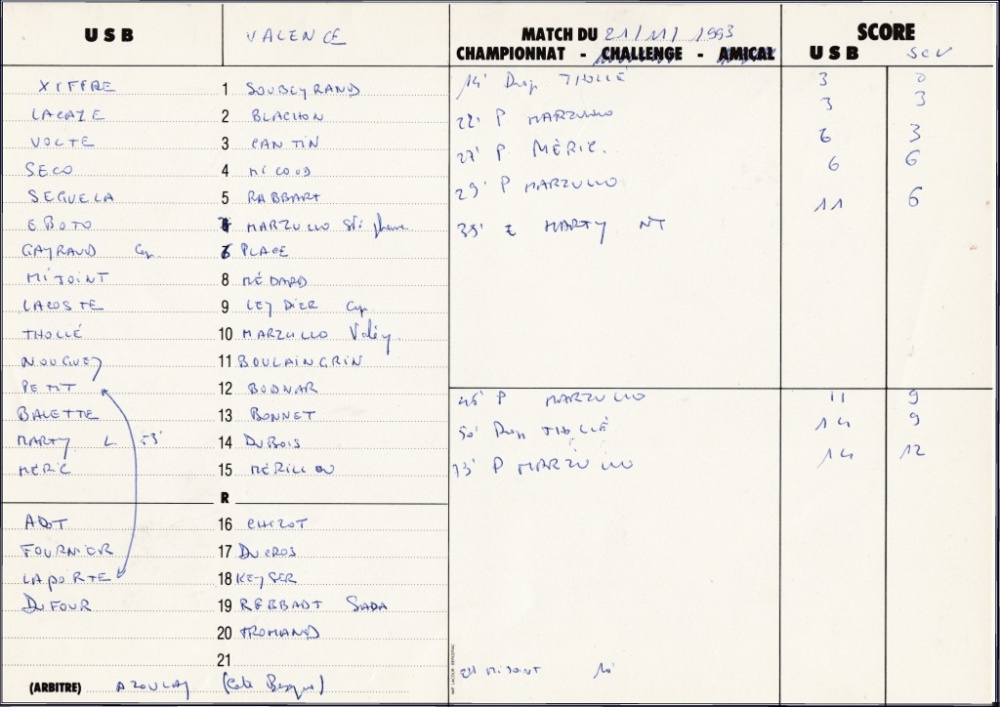 USB VALENCE MATCH DU 21/11/1993 SCORE
CHAMPIONNAT - CHALLENGE - AMICAL USB SCV
XIFFRE 1 SOUBEYRAND
LACAZE 2 BLACHON
VOLTE 3 CANTIN
SECO 4 MICOUD
SEGUELA 5 RABBART
EBOTO 7 MARZULLO Stéphane
GAYRAUD Cap. 6 PLACE
MIJOINT 8 MÉDARD
LACOSTE 9 LEYDIER Cap
THOLLÉ 10 MARZULLO Valéry.
NOUGUEY 11 BOULAINGRIN
PETIT 12 BODNAR
BALETTE 13 BONNET
MARTY L 53' 14 DUBOIS
MÉRIC 15 MÉRILLOU
R
ADOT 16 CHIZOT
FOURNIER 17 DUCROS
LAPORTE 18 KEYSER
DUFOUR 19 REBBADT SADA
20 TROMAND
21
(ARBITRE) AZOULAY (Côte Basque)
14' Drop THOLLÉ 3 0
22' P MARZULLO 3 3
27' P. MÉRIC. 6 3
29' P MARZULLO 6 6
35' E MARTY NT 11 6
46' P MARZULLO 11 9
50' Drop THOLLÉ 14 9
73' P MARZULLO 14 12
MIJOINT